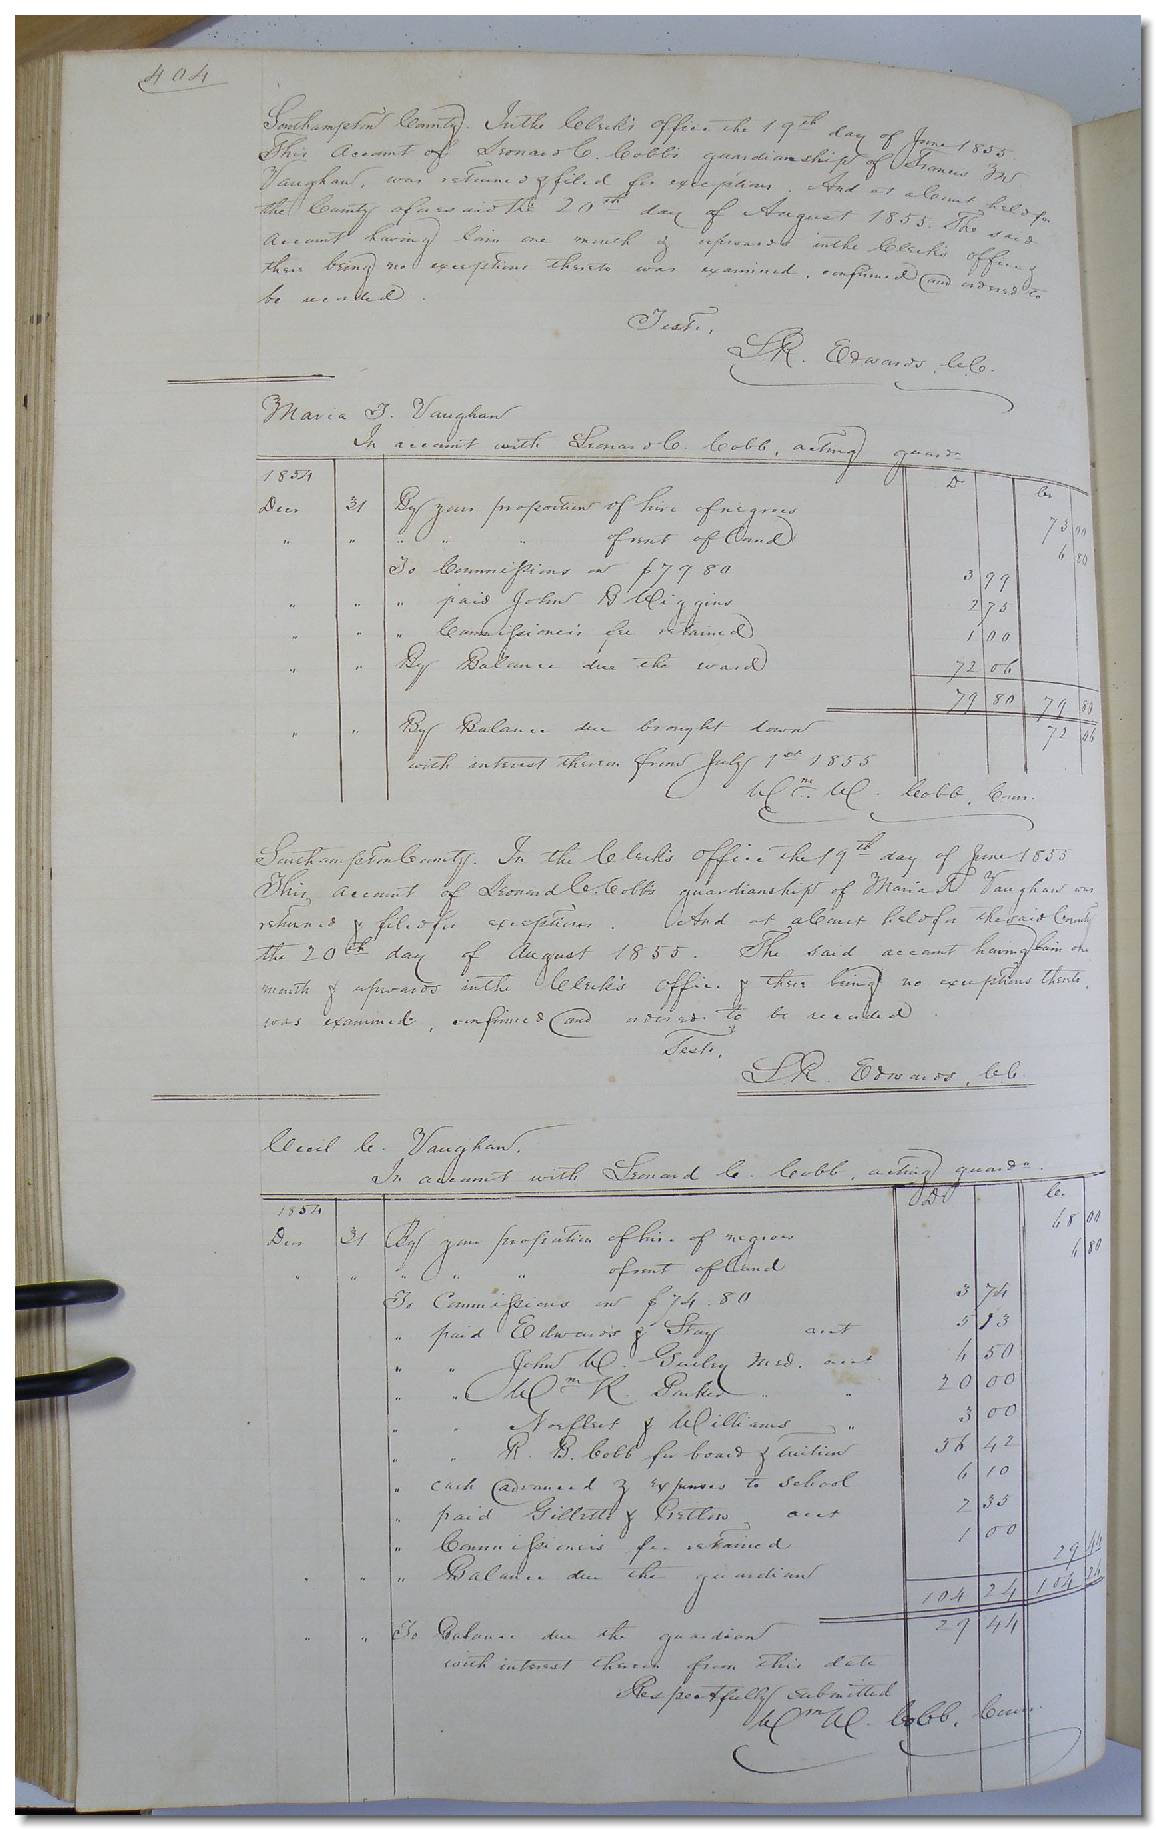 404
Southampton County. In the Clerk's office the 19th day of June 1855.
This account of Leonard C. Cobb's guardianship of Francis
Vaughan, was returned & filed for exceptions. And at a Court held for
the County aforesaid the 20th day of August 1855. The said
account having lain one month & upwards in the Clerk's office &
there being no exceptions thereto was examined, confirmed and ordered to
be recorded.
Teste,
L R. Edwards, C.C.
Maria T. Vaughan
In account with Leonard C. Cobb, acting guardn
1854 D Cr
Decr 31 By your proportion of hire of negroes 73 00
" " " " " of rent of Land 6 80
To Commissions on $79 80 3 99
" " " paid John B Wiggins 2 75
" " " Commissioner's fee retained 1 00
" " By Balance due the ward 72 06
79 80 79 80
" " By Balance due brought down 72 06
with interest thereon from July 1st 1855
Wm W. Cobb, Com.
Southampton County. In the Clerk's office the 19th day of June 1855
This account of Leonard C. Cobb's guardianship of Maria T. Vaughan was
returned & filed for exceptions. And at a Court held for the said County
the 20th day of August 1855. The said account having lain one
month & upwards in the Clerk's office & there being no exceptions thereto,
was examined, confirmed and ordered to be recorded.
Teste,
L R. Edwards, C.C.
Cecil C. Vaughan.
In account with Leonard C. Cobb, acting guardn.
1854 Dr Cr
Decr 31 By your proportion of hire of negroes 68 00
" " " " " of rent of Land 6 80
To Commissions on $74.80 3 74
" paid Edwards & Stay acct 5 13
" " John W. Gurley Med. acct 6 50
" " Wm R. Parker " " 20 00
" " Norfleet & Williams " 3 00
" " R. B. Cobb for board & tuition 56 42
" cash advanced & expenses to school 6 10
" paid Gillette & Pretlow acct 2 35
" Commissioner's fee retained 1 00
" " " Balance due the guardian 29 44
104 24 104 24
" " To Balance due the guardian 29 44
with interest thereon from this date
Respectfully submitted
Wm W. Cobb, Com.